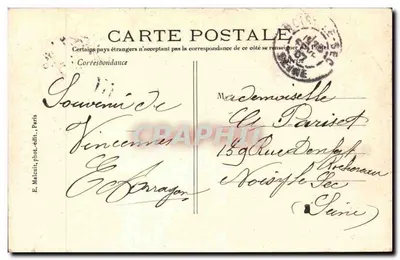 CARTE POSTALE
Certains pays étrangers n'acceptant pas la correspondance de ce côté se renseigner
Correspondance
Souvenir de
Vincennes
Mademoiselle
Cl Pariset
159 Rue Denfert
Rochereau
Noisy le Sec
Seine
E. Malcuit, phot.-édit., Paris
NOISY LE SEC
SEINE
CRAPHU